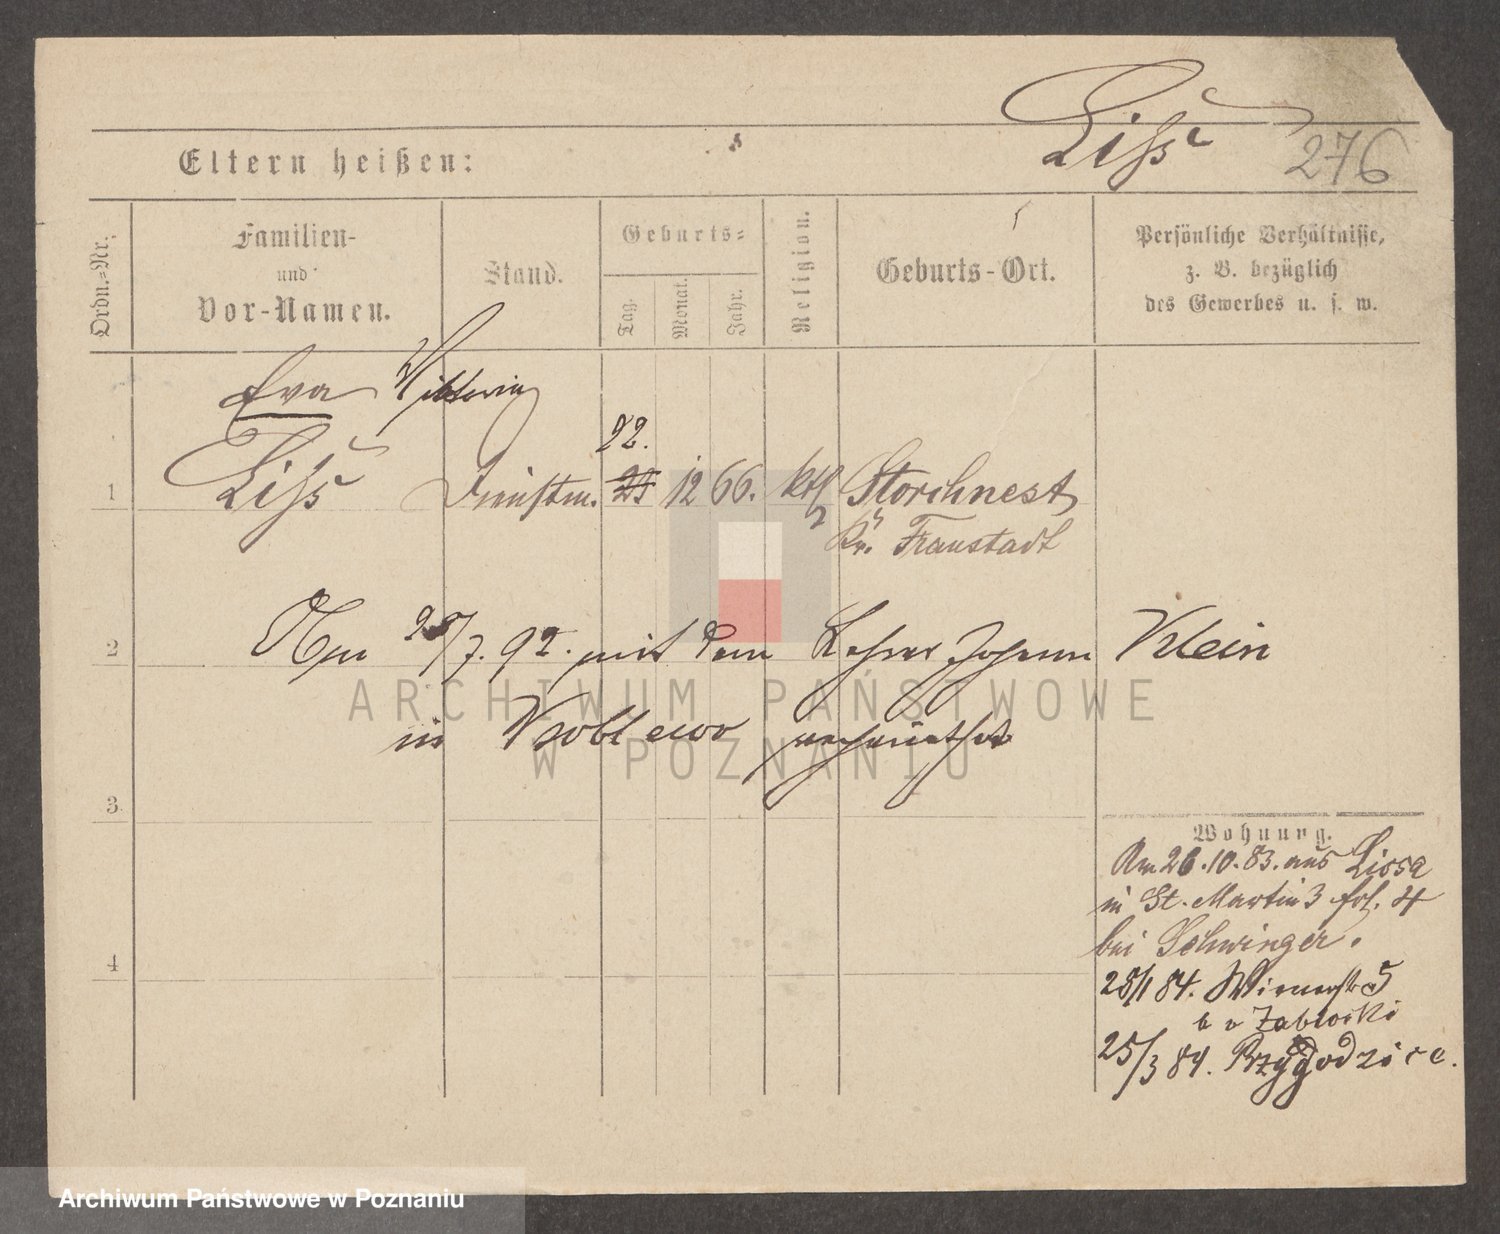 Liss
276
Eltern heißen:
Ordn.-Nr.
Familien-
und
Vor-Namen.
Stand.
Geburts-
Tag.
Monat.
Jahr.
Religion.
Geburts-Ort.
Persönliche Verhältnisse,
z. B. bezüglich
des Gewerbes u. s. w.
Eva Viktoria
22.
1 Liss Dienstm. 12 66. kth Storchnest
Kr. Fraustadt
2 Am /7. 92. mit dem Lehrer Johann Klein
in verheirathet
3.
4
Wohnung.
Am 26.10.83. aus Lissa
in St. Martin 3 fol. 4
bei Schwinger.
28/1 84. Wienerstr 5
b v Zablocki
25/3 84. Przygodzice.
ARCHIWUM PAŃSTWOWE
W POZNANIU
Archiwum Państwowe w Poznaniu